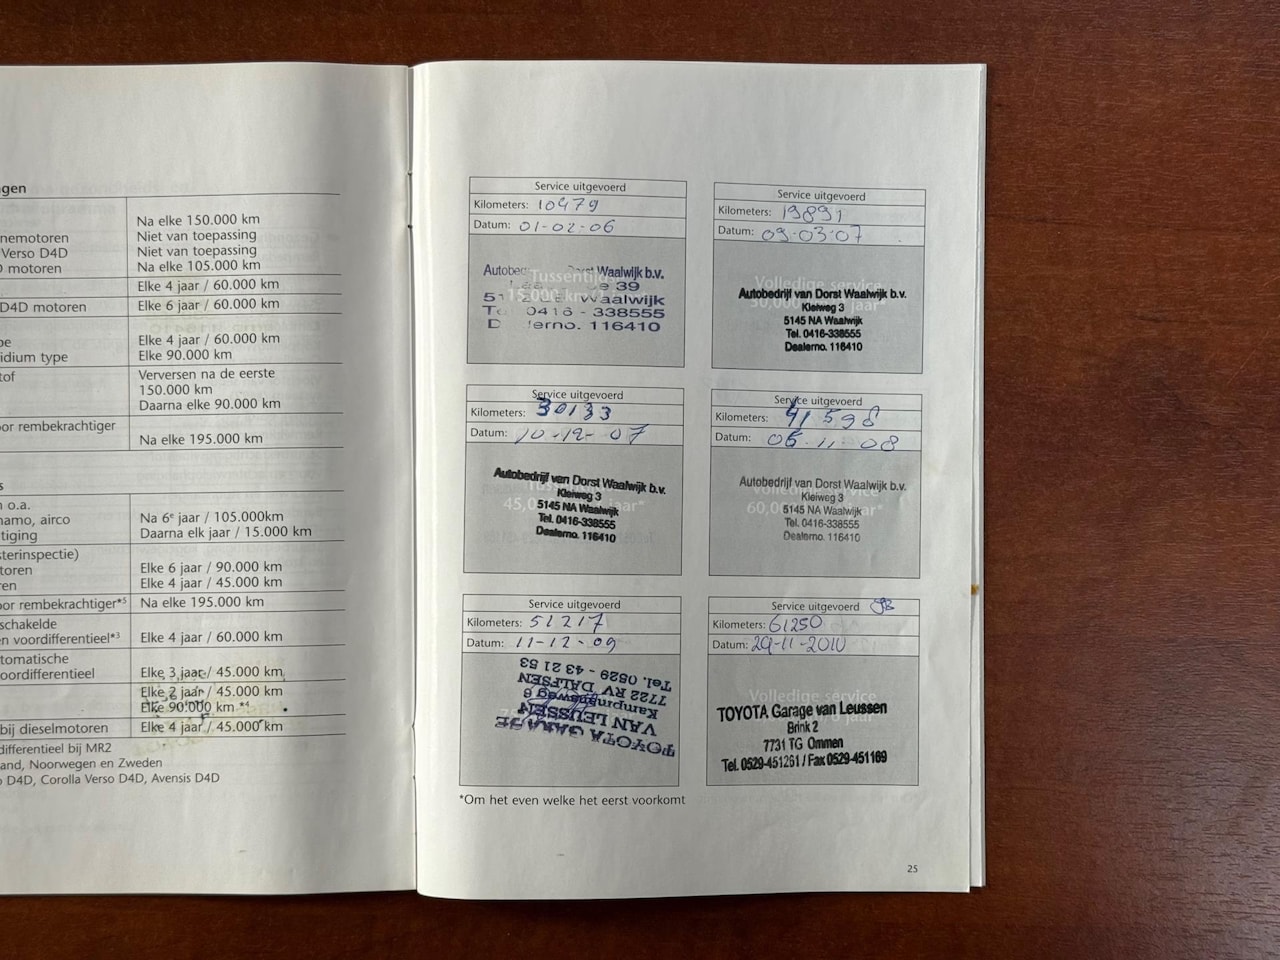 ngen
Na elke 150.000 km
nemotoren Niet van toepassing
Verso D4D Niet van toepassing
motoren Na elke 105.000 km
Elke 4 jaar / 60.000 km
D4D motoren Elke 6 jaar / 60.000 km
pe Elke 4 jaar / 60.000 km
idium type Elke 90.000 km
tof Verversen na de eerste
150.000 km
Daarna elke 90.000 km
or rembekrachtiger
Na elke 195.000 km
s
n o.a.
namo, airco Na 6e jaar / 105.000km
tiging Daarna elk jaar / 15.000 km
sterinspectie)
toren Elke 6 jaar / 90.000 km
ren Elke 4 jaar / 45.000 km
oor rembekrachtiger*5 Na elke 195.000 km
schakelde
en voordifferentieel*3 Elke 4 jaar / 60.000 km
tomatische
oordifferentieel Elke 3 jaar / 45.000 km
Elke 2 jaar / 45.000 km
Elke 90.000 km *4
bij dieselmotoren Elke 4 jaar / 45.000 km
differentieel bij MR2
and, Noorwegen en Zweden
D4D, Corolla Verso D4D, Avensis D4D
Service uitgevoerd
Kilometers: 10479
Datum: 01-02-06
Tussentijd
15.000 km
Waalwijk b.v.
39
Waalwijk
0416 - 338555
116410
Service uitgevoerd
Kilometers: 19891
Datum: 09-03-07
Volledige service
Autobedrijf van Dorst Waalwijk b.v.
Kleiweg 3
5145 NA Waalwijk
Tel. 0416-338555
Dealerno. 116410
Service uitgevoerd
Kilometers: 30133
Datum: 10-12-07
Autobedrijf van Dorst Waalwijk b.v.
Kleiweg 3
45.000 jaar*
5145 NA Waalwijk
Tel. 0416-338555
Dealerno. 116410
Service uitgevoerd
Kilometers: 41598
Datum: 05-11-08
Autobedrijf van Dorst Waalwijk b.v.
Volledige service
Kleiweg 3
60.000 jaar*
5145 NA Waalwijk
Tel. 0416-338555
Dealerno. 116410
Service uitgevoerd
Kilometers: 51217
Datum: 11-12-09
TOYOTA GARAGE
VAN LEUSSEN
Kampmansweg 6
7722 RV DALFSEN
Tel. 0529 - 43 21 53
Service uitgevoerd
Kilometers: 61250
Datum: 29-11-2010
Volledige service
TOYOTA Garage van Leussen
Brink 2
7731 TG Ommen
Tel. 0529-451261 / Fax 0529-451169
*Om het even welke het eerst voorkomt
25